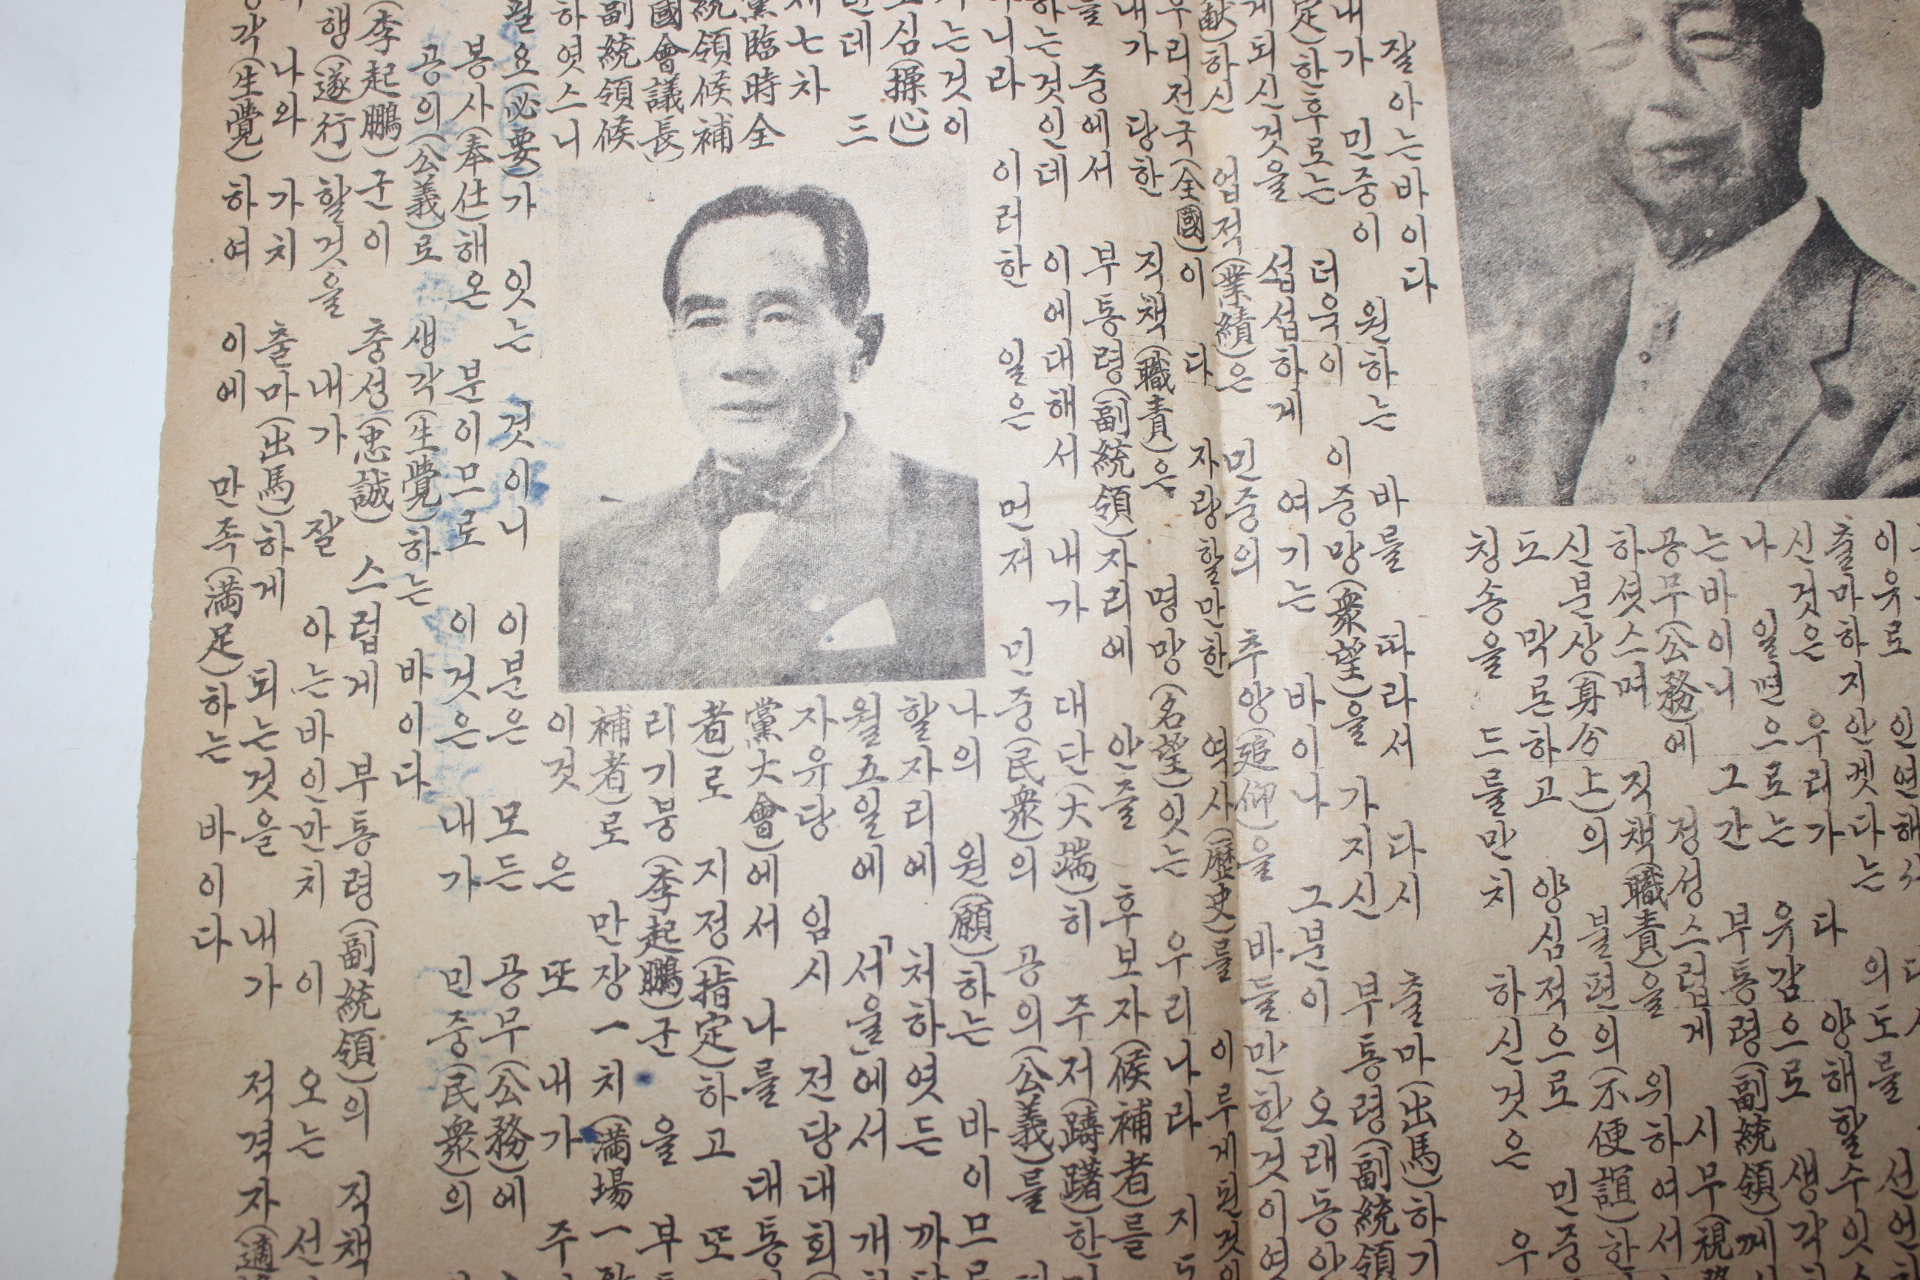 이유로 인연해서
출마하지안켓다는 의도를 선언
신것은 우리가 다 양해할수잇
나 일면으로는 유감으로 생각
는바이니 그간 부통령(副統領)께
공무(公務)에 정성스럽게 시무(視務
하셧스며 직책(職責)을 위하여서
신분상(身分上)의 불편의(不便誼)한
도 막론하고 양심적으로 민중
칭송을 드를만치 하신것은 우
잘아는바이다
내가 민중이 원하는 바를 따라서 다시 출마(出馬)하기
定)한후로는 더욱이 이중망(衆望)을 가지신 부통령(副統領
게되신것을 섭섭하게 여기는 바이나 그분이 오래동안
献)하신 업적(業績)은 민중의 추앙(追仰)을 바들만한것이여
우리전국(全國)이 다 자랑할만한 역사(歷史)를 이루게된것의
내가 당한 직책(職責)은 명망(名望)잇는 우리나라 지도
을 중에서 부통령(副統領)자리에 안즐 후보자(候補者)를
하는것인데 이에대해서 내가 대단(大端)히 주저(躊躇)한
니라 이러한 일은 먼저 민중(民衆)의 공의(公義)를
는것이
심(操心)
데 三
七차
黨臨時全
統領候補
國會議長)
副統領候
하엿스니
나의 원(願)하는 바이므로
할자리에 처하엿든 까
월五일에 「서울」에서 개
자유당 임시 전당대회(
黨大會)에서 나를 대통
者)로 지정(指定)하고 또
리기붕(李起鵬)군을 부
補者)로 만장一치(満場一
이것은 또 내가 주
필요(必要)가 잇는 것이니 이분은 모든 공무(公務)에
봉사(奉仕)해온 분이므로 이것은 내가 민중(民衆)의
공의(公義)로 생각(生覺)하는 바이다
(李起鵬)군이 충성(忠誠)스럽게 부통령(副統領)의 직책
행(遂行)할것을 내가 잘 아는바인만치 이 오는 선
나와 가치 출마(出馬)하게 되는것을 내가 적격자(適
각(生覺)하여 이에 만족(満足)하는 바이다